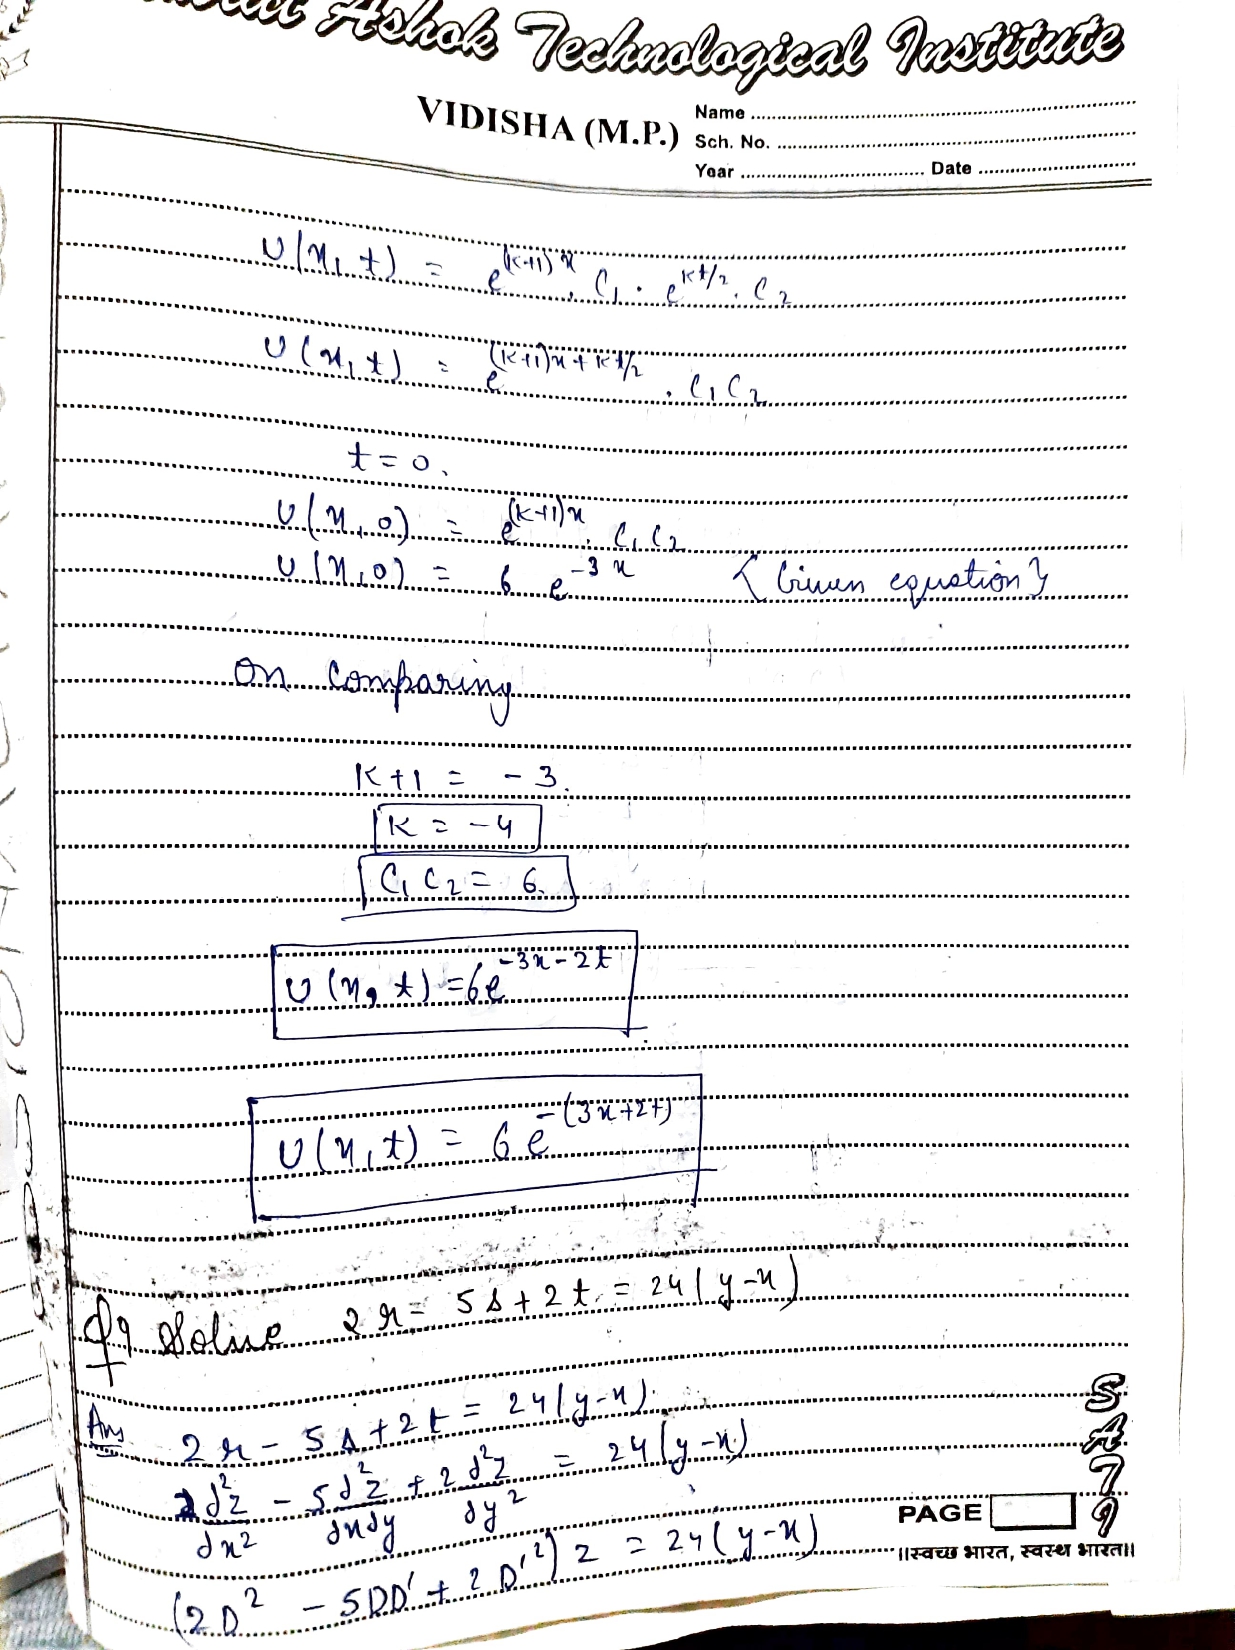 Ashok Technological Institute
VIDISHA (M.P.)
Name
Sch. No.
Year Date
U(x,t) = e^(k+1)x . C1 . e^kt/2 . C2
U(x,t) = e^(k+1)x + kt/2 . C1C2
t=0.
U(x,0) = e^(k+1)x . C1C2
U(x,0) = 6 e^-3x {Given equation}
On Comparing
K+1 = -3.
K = -4
C1 C2 = 6.
U(x, t) = 6e^-3x-2t
U(x,t) = 6e^-(3x+2t)
Q9 Solve 2r - 5s + 2t = 24(y-x)
Ans 2r - 5s + 2t = 24(y-x)
2∂²z/∂x² - 5∂²z/∂x∂y + 2∂²z/∂y² = 24(y-x)
(2D² - 5DD' + 2D'²)z = 24(y-x)
SATI
PAGE
॥स्वच्छ भारत, स्वस्थ भारत॥